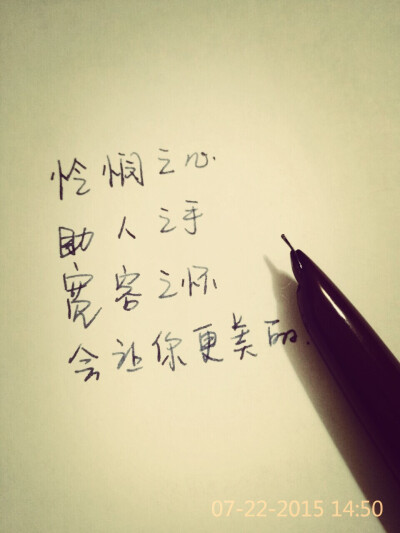 怜悯之心.
助人之手
宽容之怀
会让你更美丽.
07-22-2015 14:50